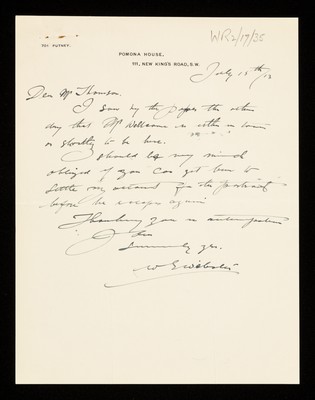 701 PUTNEY.
WR2/17/35
POMONA HOUSE,
111, NEW KING'S ROAD, S.W.
July 15th 13
Dear Mr Thomson.
I saw by the paper the other
day that Mr Wellcome is either in town
or shortly to be here.
I should be very much
obliged if you can get him to
settle my account for the portrait
before he escapes again
Thanking you in anticipation
I am
Sincerely yrs.
W G Webster